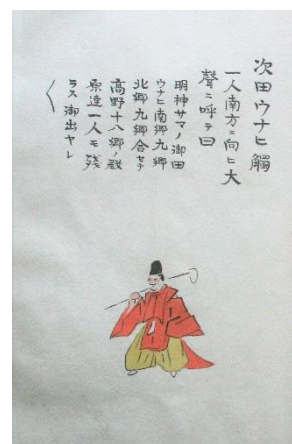 次田ウナヒ觸
一人南方ニ向ヒ大
聲ニ呼テ曰
明神サマノ御田
ウナヒ南郷九郷
北郷九郷合セテ
高野十八郷ノ殿
原達一人モ残
ラス御出ヤレ